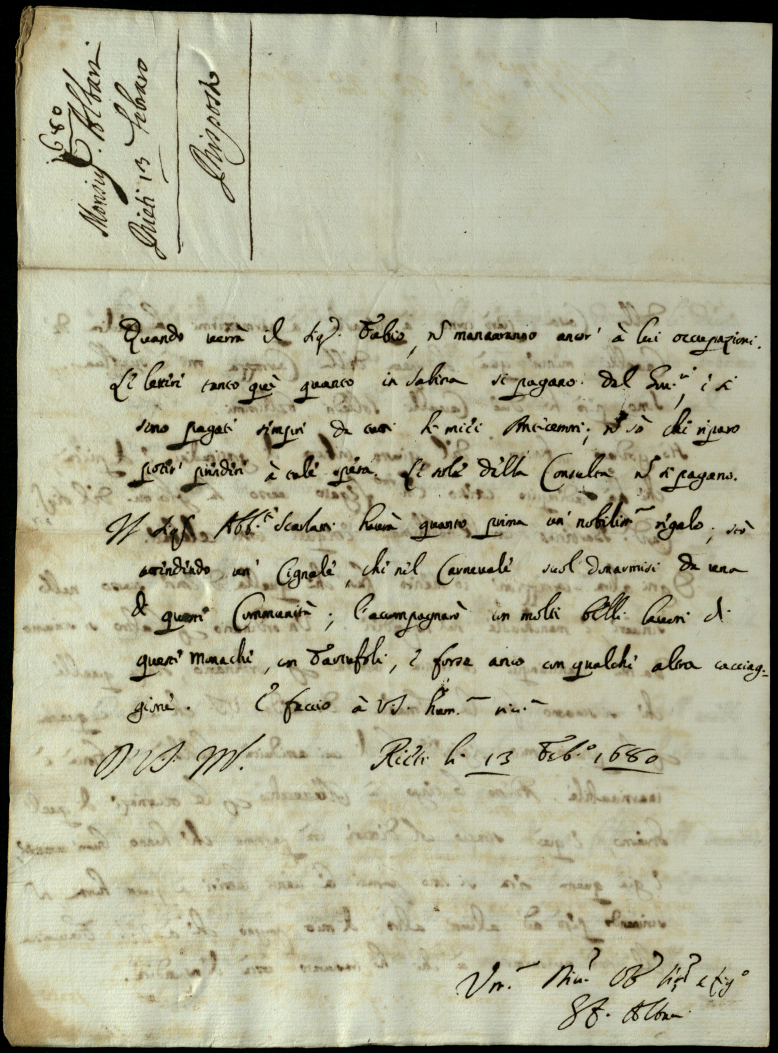 1680
Monsig. Albani
Rieti 13 Febraro
Risposta
Quando verrà il Sig.r Fabio, ñ mancaranno ancor' à lui occupazioni.
Le lettere tanto quì quanto in Sabina si pagano dal Gov.re, e si
sono pagate sempre da tutti li miei Antecessori; ñ sò che riparo
poter' prendere à tale spesa. Le sole della Consulta ñ si pagano.
Il Sig.r Abb.te Scarlatti haverà quanto prima un' nobiliss.mo regalo; stò
attendendo un' Cignale, che nel Carnevale suol donarmisi da una
di queste Communità; l'accompagnarò con molti belli lavori di
queste Monache, con Tartufoli, e forse anco con qualche altra cacciag-
gione. E faccio à VS. hum.ma riv.za
D. VS. Ill.
Rieti li 13 Feb.o 1680
Albani